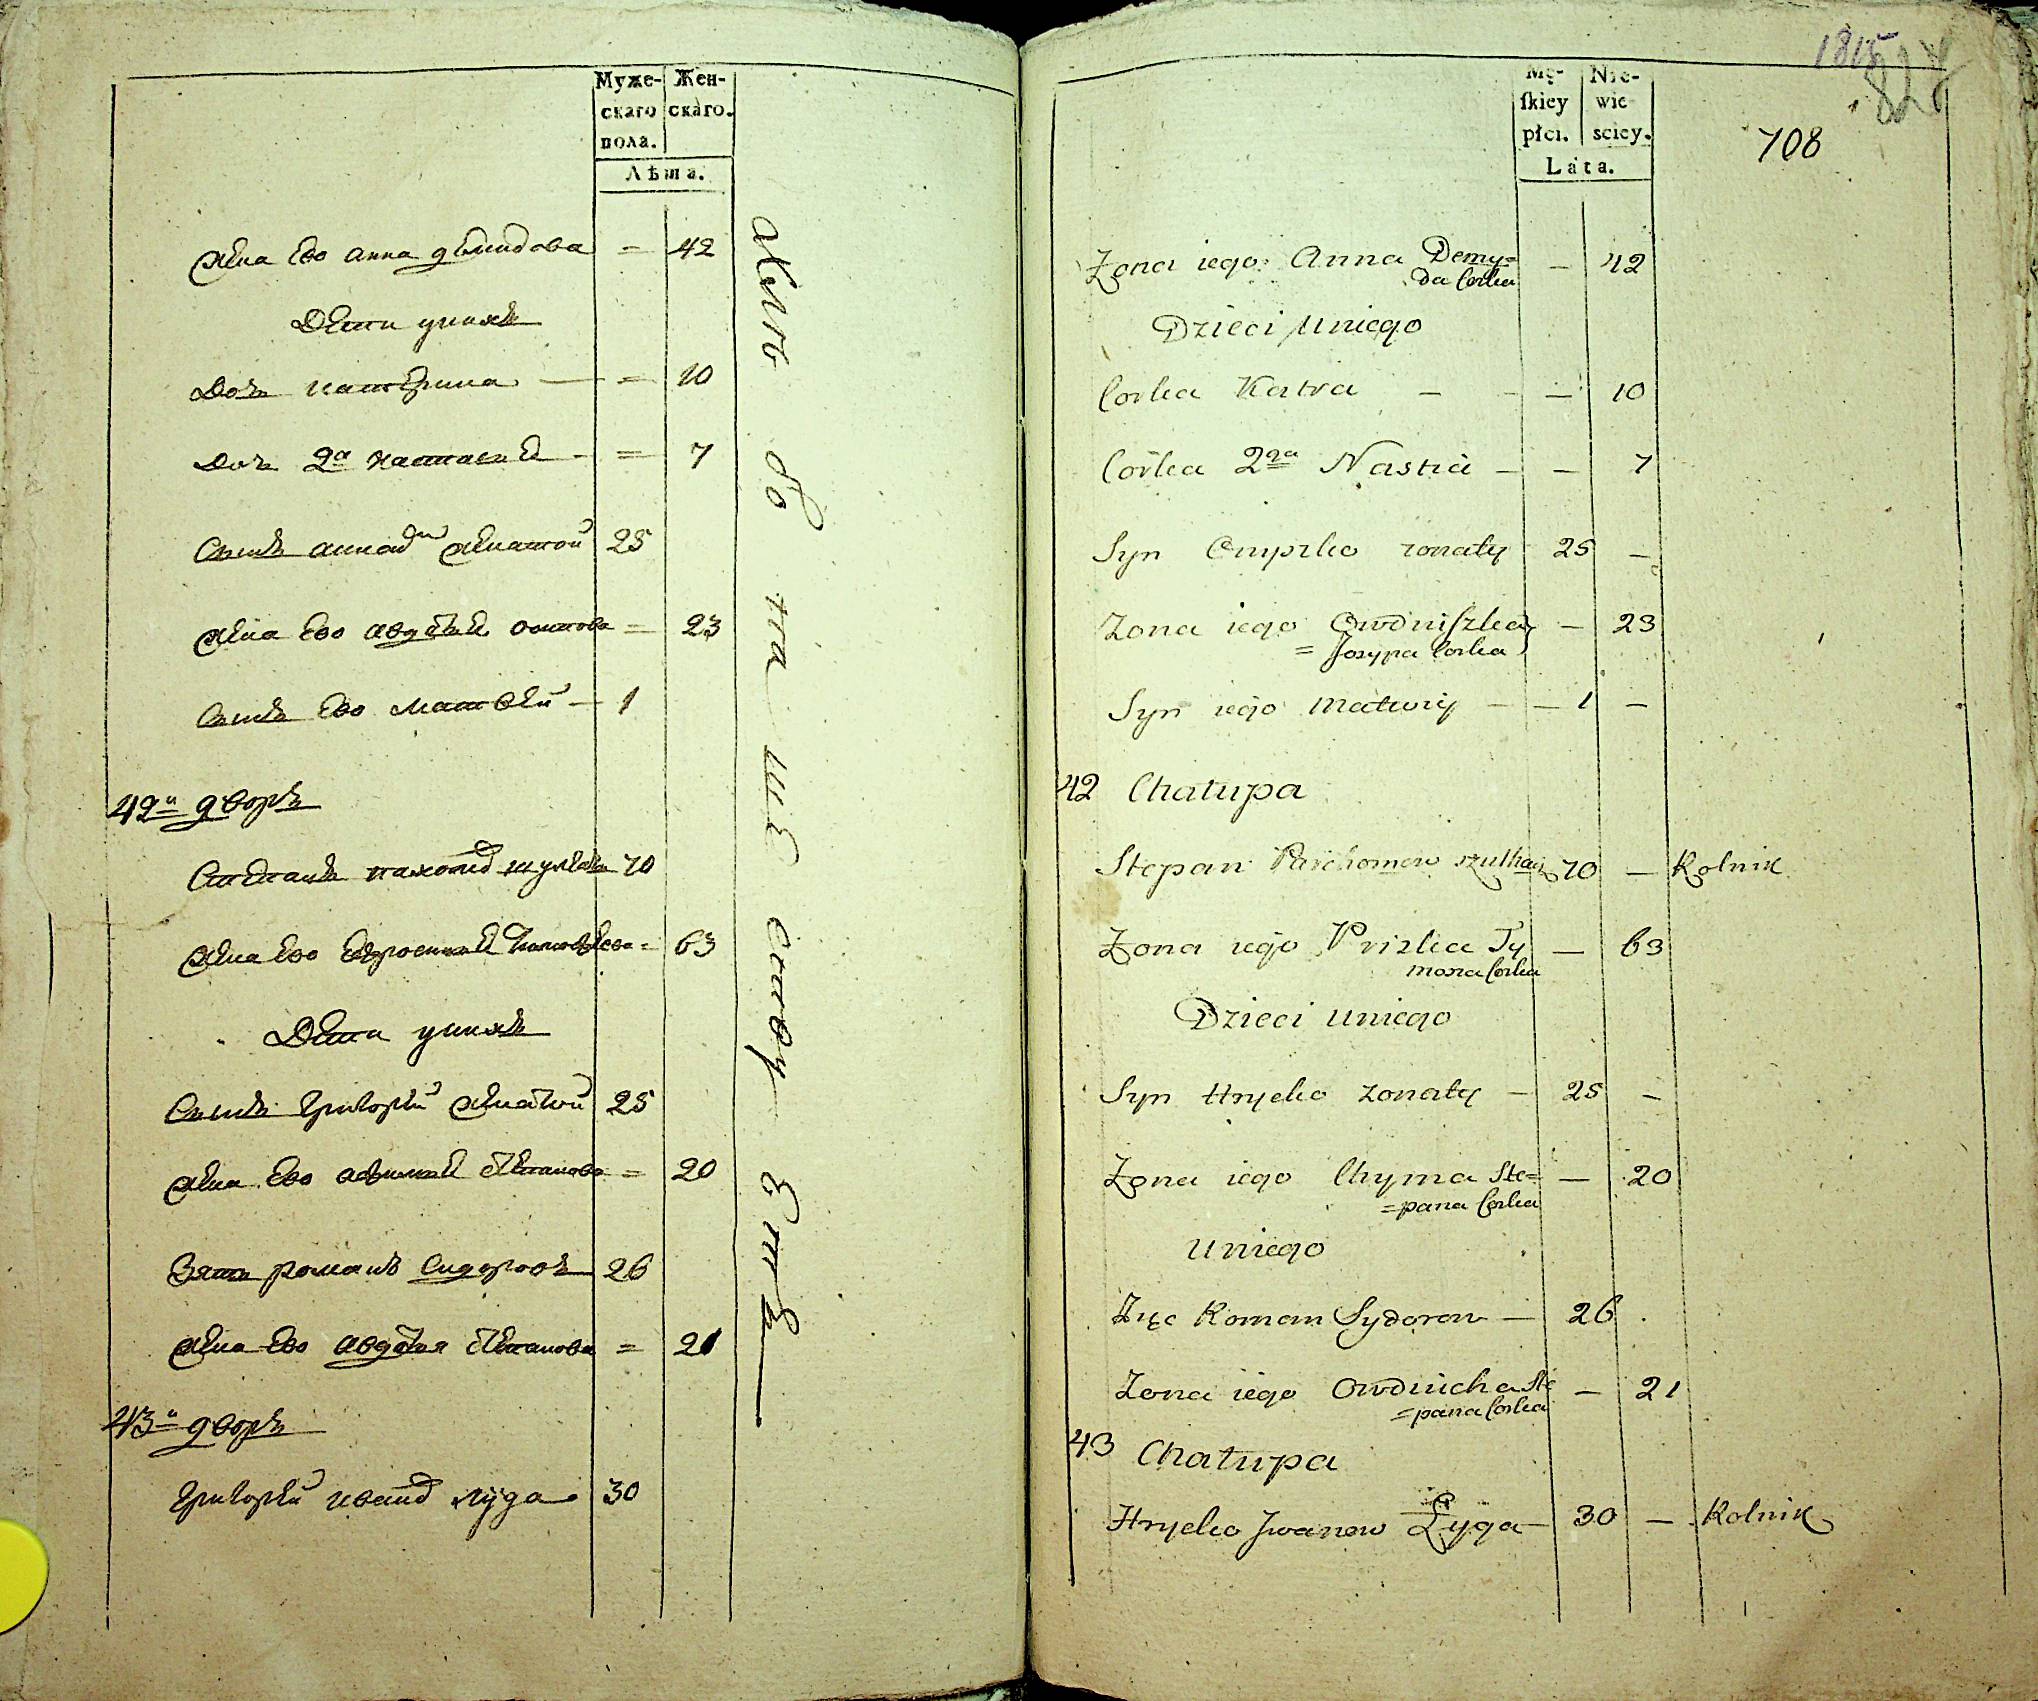 Муже-
скаго
пола.
Жен-
скаго.
Лѣта.
Жена Ево Анна демидова = 42
Дети унихъ
Дочь катерина — = 10
Дочь 2а настасиЕ - = 7
Сынъ женатой 25
Жена Ево авдотьЕ осипова = 23
Сынъ Ево матвѣй — 1
42й дворъ
Степанъ пахомо шулга 70
Жена Ево = 63
Дети унихъ
Сынъ григорей женатой 25
Жена Ево афимьЕ степанова = 20
Зять романъ Сидоровъ 26
Жена Ево авдотья степанова = 21
43й дворъ
григорей ивано лыга 30
1815
708
Mę-
skiey
płci.
Nie-
wie
sciey.
Lata.
Zona iego Anna Demy= — 42
da Corka
Dzieci Uniego
Corka Katra — - — 10
Corka 2ga Nastia — — 7
Syn żonaty 25 —
Zona iego Owdniszka — 23
= Josypa Corka
Syn iego Matwiy — — 1 —
42 Chałupa
Stepan Parchomow 70 — Rolnik
Zona iego Pryska Ty — 63
mosza Corka
Dzieci uniego
Syn Hryćko żonaty — 25 —
Zona iego Chyma Ste= — 20
=pana Corka
Uniego
Zięc Roman Sydorow — 26
Zona iego Owdiucha Ste — 21
=pana Corka
43 Chałupa
Hryćko Jwanow Łyga — 30 — Rolnik